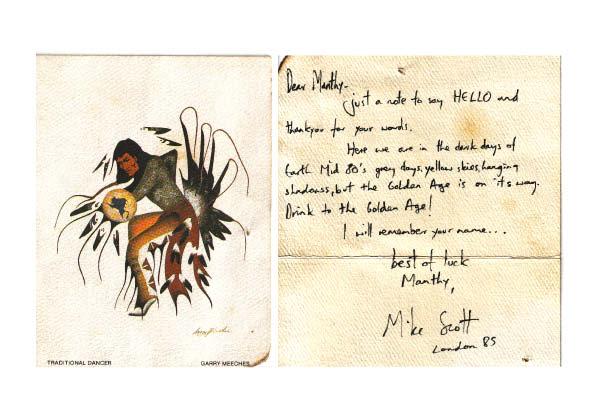 TRADITIONAL DANCER
GARRY MEECHES
Dear Manthy-
just a note to say HELLO and
thankyou for your words.
Here we are in the dark days of
Earth Mid 80's grey days, yellow skies, hanging
shadows, but the Golden Age is on its way.
Drink to the Golden Age!
I will remember your name...
best of luck
Manthy,
Mike Scott
London 85